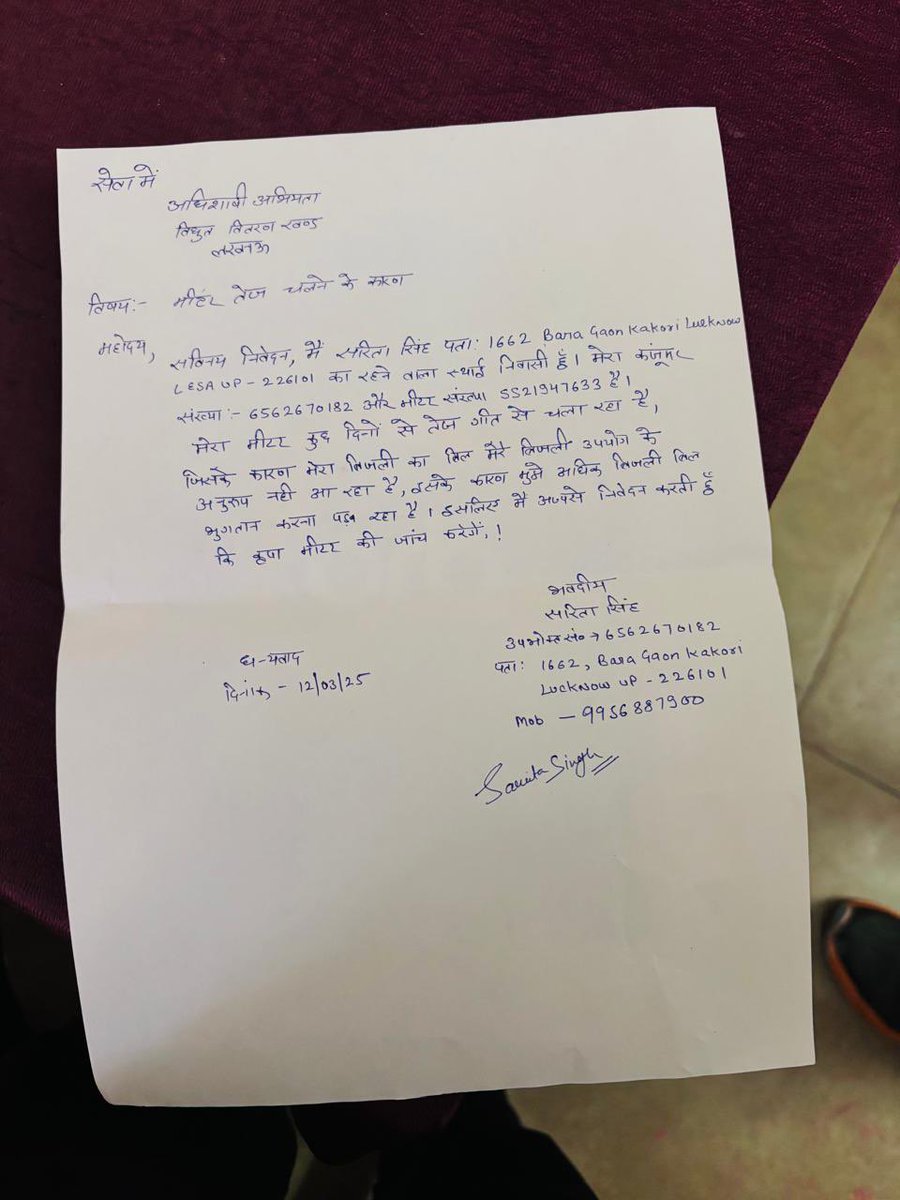 सेवा में
अधिशाषी अभियंता
विधुत वितरण खण्ड
लखनऊ
विषय:- मीटर तेज चलने के कारण
महोदय,
सविनय निवेदन, मैं सरिता सिंह पता: 1662 Bara Gaon Kakori Lucknow
LESA UP - 226101 का रहने वाला स्थाई निवासी हूँ। मेरा कंज़ूमर
संख्या :- 6562670182 और मीटर संख्या SS21947633 है।
मेरा मीटर कुछ दिनों से तेज गति से चला रहा है,
जिसके कारण मेरा बिजली का बिल मेरे बिजली उपयोग के
अनुरूप नही आ रहा है, इसके कारण मुझे अधिक बिजली बिल
भुगतान करना पड़ रहा है। इसलिए मै आपसे निवेदन करती हूँ
कि कृपा मीटर की जांच करेगें,!
भवदीय
सरिता सिंह
उपभोक्ता सं० → 6562670182
पता: 1662, Bara Gaon Kakori
Lucknow UP - 226101
Mob - 9956887900
Sarita Singh
धन्यवाद
दिनांक - 12/03/25